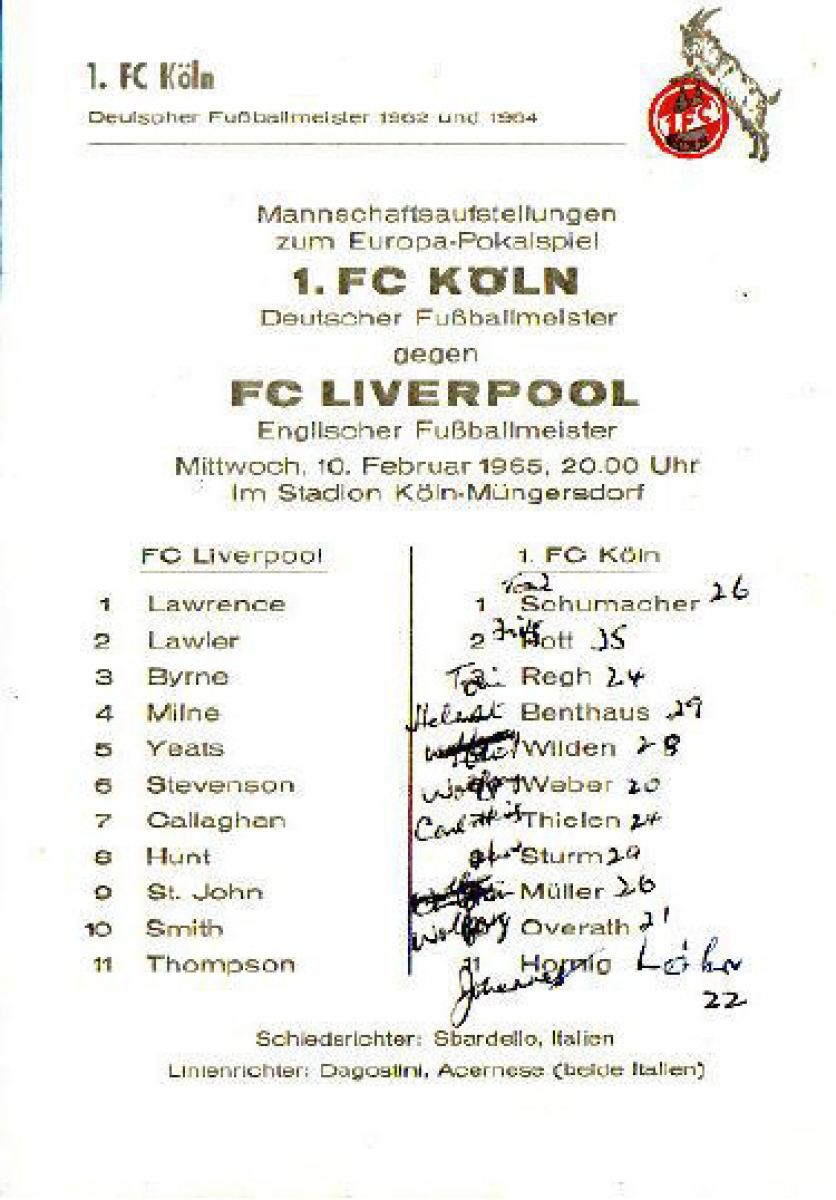 1. FC Köln
Deutscher Fußballmeister 1962 und 1964
1.FC
KÖLN
Mannschaftsaufstellungen
zum Europa-Pokalspiel
1. FC KÖLN
Deutscher Fußballmeister
gegen
FC LIVERPOOL
Englischer Fußballmeister
Mittwoch, 10. Februar 1965, 20.00 Uhr
im Stadion Köln-Müngersdorf
FC Liverpool
1 Lawrence
2 Lawler
3 Byrne
4 Milne
5 Yeats
6 Stevenson
7 Callaghan
8 Hunt
9 St. John
10 Smith
11 Thompson
1. FC Köln
1 Schumacher 26
2 Fritz Pott 25
Regh 24
Helmut Benthaus 29
Wilden 28
Wolfgang Weber 20
Carl-Heinz Thielen 24
Sturm 29
Müller 26
Wolfgang Overath 21
11 Hornig Löhr
Johannes
22
Schiedsrichter: Sbardello, Italien
Linienrichter: Dagostini, Acernese (beide Italien)